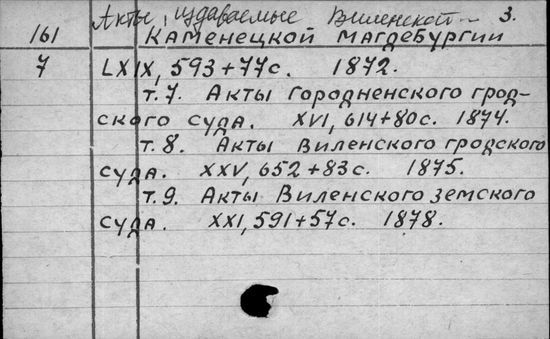 Акты, издаваемые Виленской... 3.
161 Каменецкой магдебургии
7 LXIX, 593+77с. 1872.
т.7. Акты Городненского грод-
ского суда. XVI, 614+80с. 1874.
т.8. Акты Виленского гродского
суда. XXV, 652+83с. 1875.
т.9. Акты Виленского земского
суда. XXI, 591+57с. 1878.